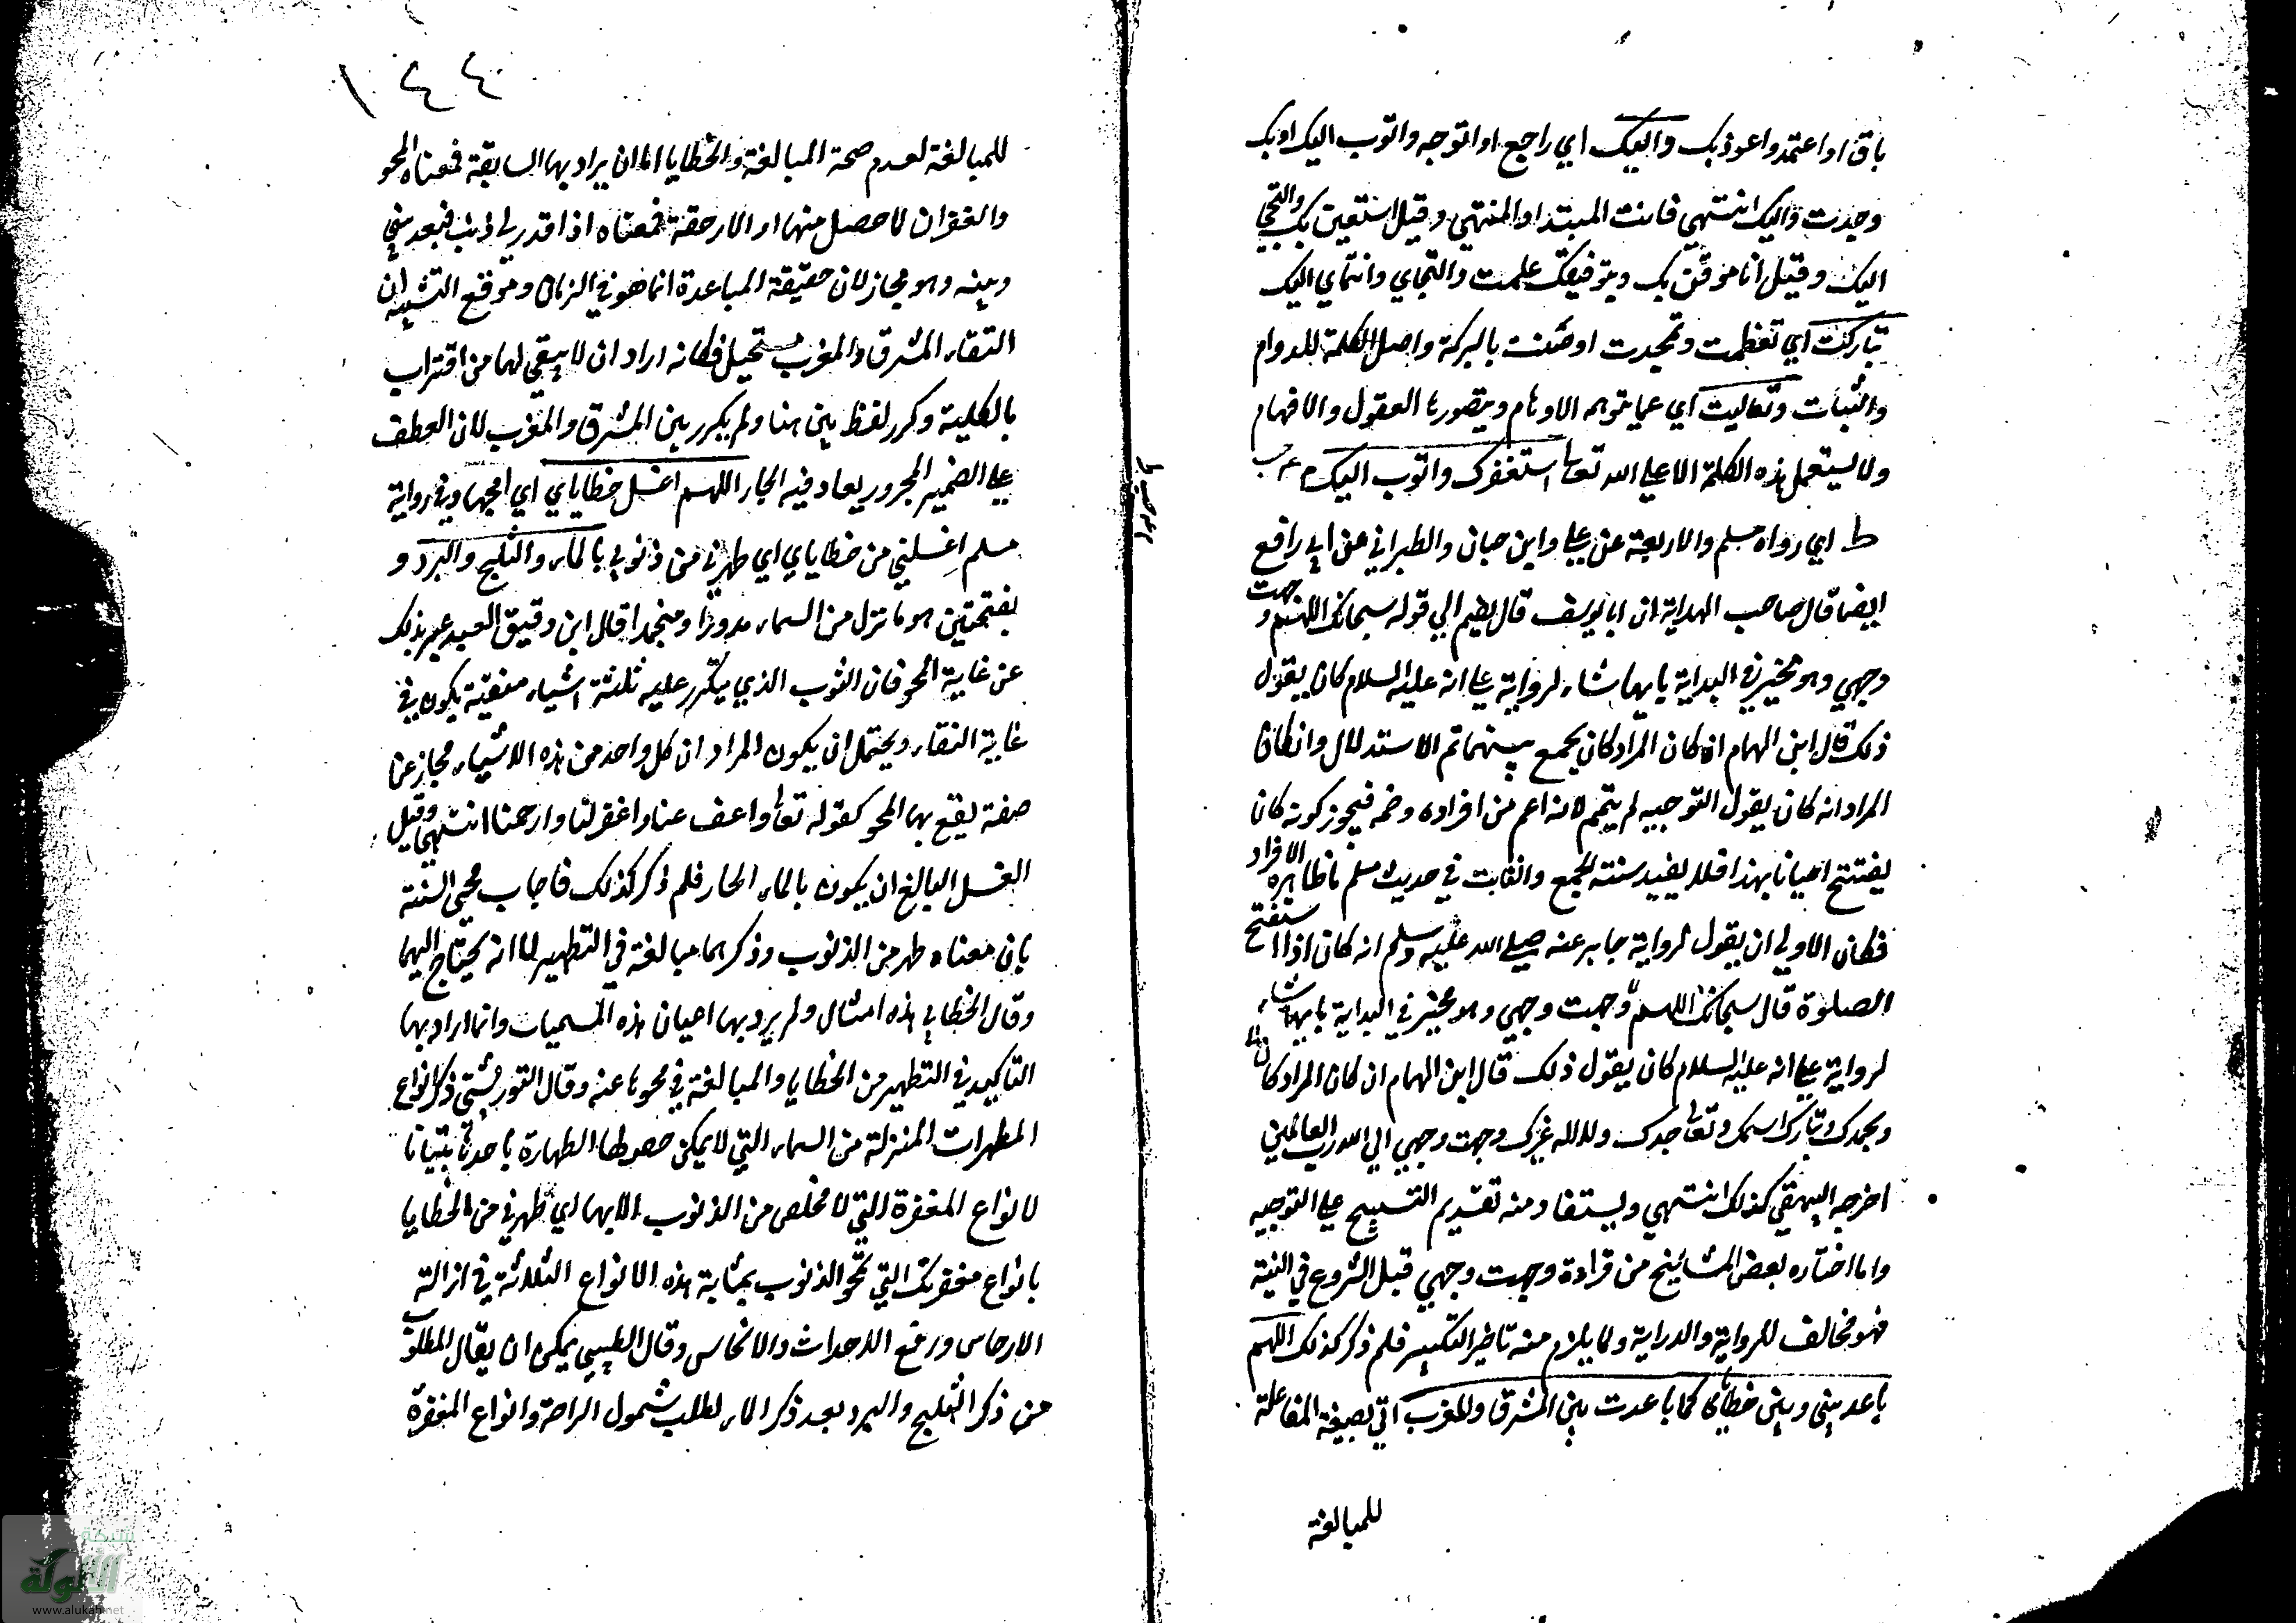 باق او اعتمد واعوذ بك واليك اي راجع او اتوجه واتوب اليك او بك
وجدت واليك انتهي فانت المبتدا والمنتهي وقيل استعين بك والتجي
اليك وقيل انا موقن بك وبتوفيقك علمت والتجاي وانتماي اليك
تباركت اي تعظمت وتمجدت او جئت بالبركة واصل الكلمة للدوام
والثبات وتعاليت اي عما يتوهمه الاوهام ويتصورها العقول والافهام
ولا يستعمل هذه الكلمة الا علي الله تعالى استغفرك واتوب اليك م عه حب
ط اي رواه مسلم والاربعة عن علي وابن حبان والطبراني عن ابي رافع
ايضا قال صاحب الهداية ان ابا يوسف قال يضم الي قوله سبحانك اللهم وجهت
وجهي وهو مخير في البداية بايهما شاء لرواية علي انه عليه السلام كان يقول
ذلك قال ابن الهمام ان كان المراد كان يجمع بينهما تم الاستدلال وان كان
المراد انه كان يقول التوجيه لم يتم لانه اعم من افراده وضمه فيجوز كونه كان
يفتتح احيانا بهذا فلا يفيد سنته الجمع والثابت في حديث مسلم ما ظاهره الافراد
فكان الاولي ان يقول لرواية جابر عنه صلي الله عليه وسلم انه كان اذا استفتح
الصلوة قال سبحانك اللهم وجهت وجهي وهو مخير في البداية بايهما شاء
لرواية علي انه عليه السلام كان يقول ذلك قال ابن الهمام ان كان المراد كان
وبحمدك وتبارك اسمك وتعالى جدك ولا اله غيرك وجهت وجهي الي الله رب العالمين
اخرجه البيهقي كذلك انتهي ويستفاد منه تقديم التسبيح علي التوجيه
واما اختاره بعض المشائخ من قراءة وجهت وجهي قبل الشروع في النية
فهو مخالف للرواية والدراية ولما يلزم منه تاخير التكبير فلم ذكر كذلك اللهم
باعد بيني وبين خطاياي كما باعدت بين المشرق والمغرب اتي بصيغة المفاعلة
للمبالغة
١٤٤
للمبالغة لعدم صحة المبالغة والخطايا اما ان يراد بها السابقة فمعناه المحو
والغفران لما حصل منها او اللاحقة فمعناه اذا قدر لي ذنب فبعد بيني
وبينه وهو مجاز لان حقيقة المباعدة انما هو في الزمان وموقع التشبيه ان
التقاء المشرق والمغرب مستحيل فكانه اراد ان لا يبقي لهما من اقتراب
بالكلية وكرر لفظ بين هنا ولم يكرر بين المشرق والمغرب لان العطف
علي الضمير المجرور يعاد فيه الجار اللهم اغسل خطاياي اي امحها وفي رواية
مسلم اغسلني من خطاياي اي طهرني من ذنوبي بالماء والثلج والبرد و
بفتحتين هو ما نزل من السماء مدورا ومنجمدا قال ابن دقيق العيد عبر بذلك
عن غاية المحو فان الثوب الذي يتكرر عليه ثلثة اشياء منقية يكون في
غاية النقاء ويحتمل ان يكون المراد ان كل واحد من هذه الاشياء مجاز عن
صفة يقع بها المحو كقوله تعالى واعف عنا واغفر لنا وارحمنا انتهي وقيل
الغسل البالغ ان يكون بالماء الحار فلم ذكر كذلك فاجاب محي السنة
بان معناه طهر من الذنوب وذكرهما مبالغة في التطهير لا انه يحتاج اليهما
وقال الخطابي هذه امثال ولم يرد بها اعيان هذه المسميات وانما اراد بها
التاكيد في التطهير من الخطايا والمبالغة في محوها عنه وقال التوربشتي ذكر انواع
المطهرات المنزلة من السماء التي لا يمكن حصول الطهارة باحدها تبيانا
لانواع المغفرة التي لا مخلص من الذنوب الا بها اي طهرني من الخطايا
بانواع مغفرتك التي تمحو الذنوب بمثابة هذه الانواع الثلاثة في ازالة
الارجاس ورفع الاحداث والانجاس وقال الطيبي يمكن ان يقال المطلوب
من ذكر الثلج والبرد بعد ذكر الماء لطلب شمول الرحمة وانواع المغفرة
شبكة
الألوكة
www.alukah.net